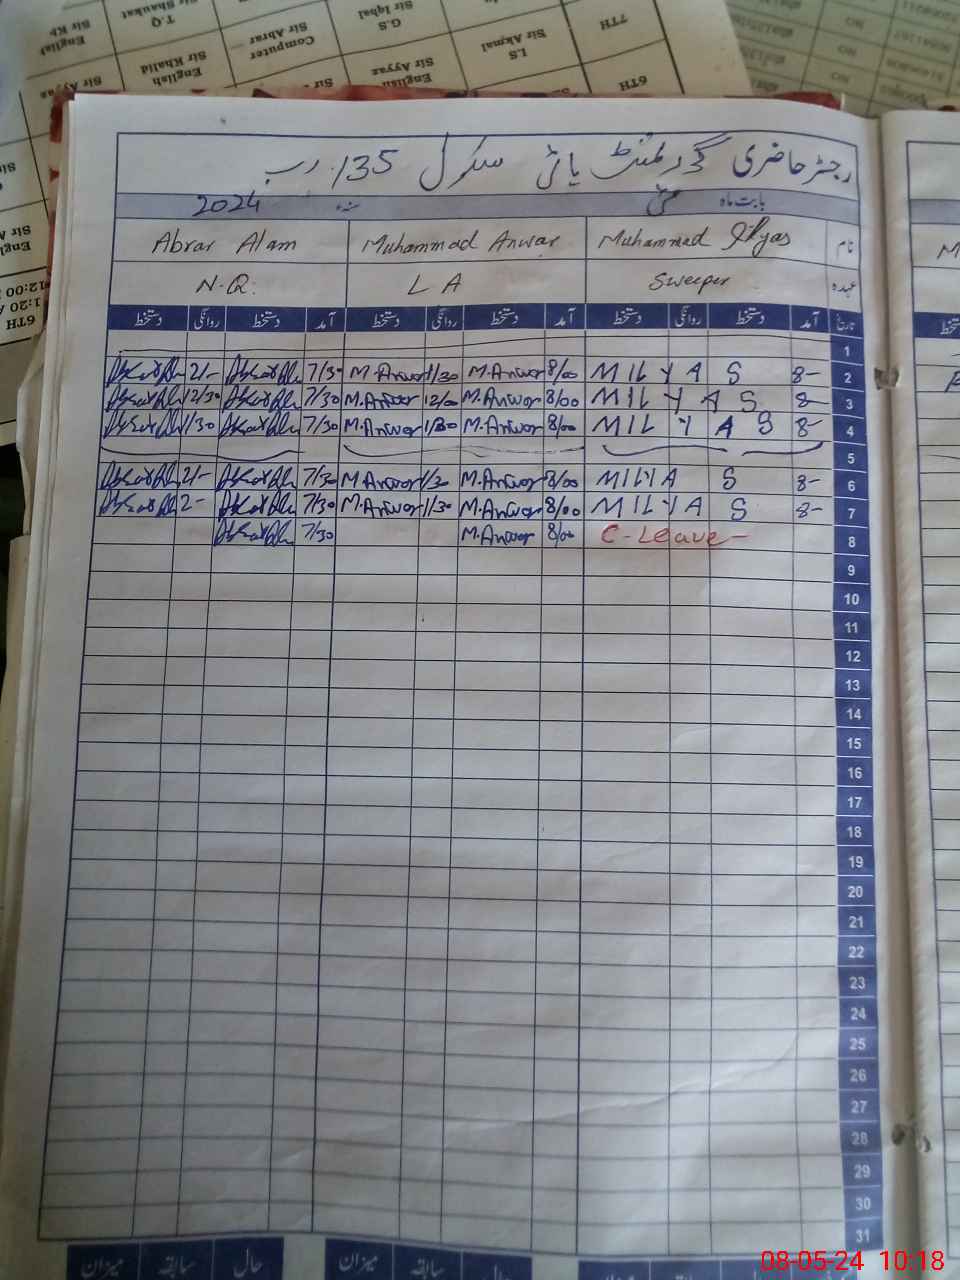 Sir Shaukat
T.Q
Sir Iqbal
G.S
7TH
English
Sir Khalid
English
Sir Abrar
Computer
Sir Ayyaz
English
Sir Akmal
LS
6TH
NO
NO
رجسٹر حاضری گورنمنٹ ہائی سکول 135/ر ب
بابت ماہ مئی سنہ 2024
نام Muhammad Ilyas Muhammad Anwar Abrar Alam
عہدہ Sweeper L A N.Q.
تاریخ آمد دستخط روانگی دستخط آمد دستخط روانگی دستخط آمد دستخط روانگی دستخط
1
2 8- M I L Y A S 8/00 M.Anwar 1/30 M.Anwar 7/30 2/-
3 8- M I L Y A S 8/00 M.Anwar 12/00 M.Anwar 7/30 12/30
4 8- M I L Y A S 8/00 M.Anwar 1/30 M.Anwar 7/30 1/30
5
6 8- M I L Y A S 8/00 M.Anwar 1/30 M.Anwar 7/30 2/-
7 8- M I L Y A S 8/00 M.Anwar 1/30 M.Anwar 7/30 2-
8 C-Leave- 8/00 M.Anwar 7/30
9
10
11
12
13
14
15
16
17
18
19
20
21
22
23
24
25
26
27
28
29
30
31
حال سابقہ میزان حال سابقہ میزان
08-05-24 10:18